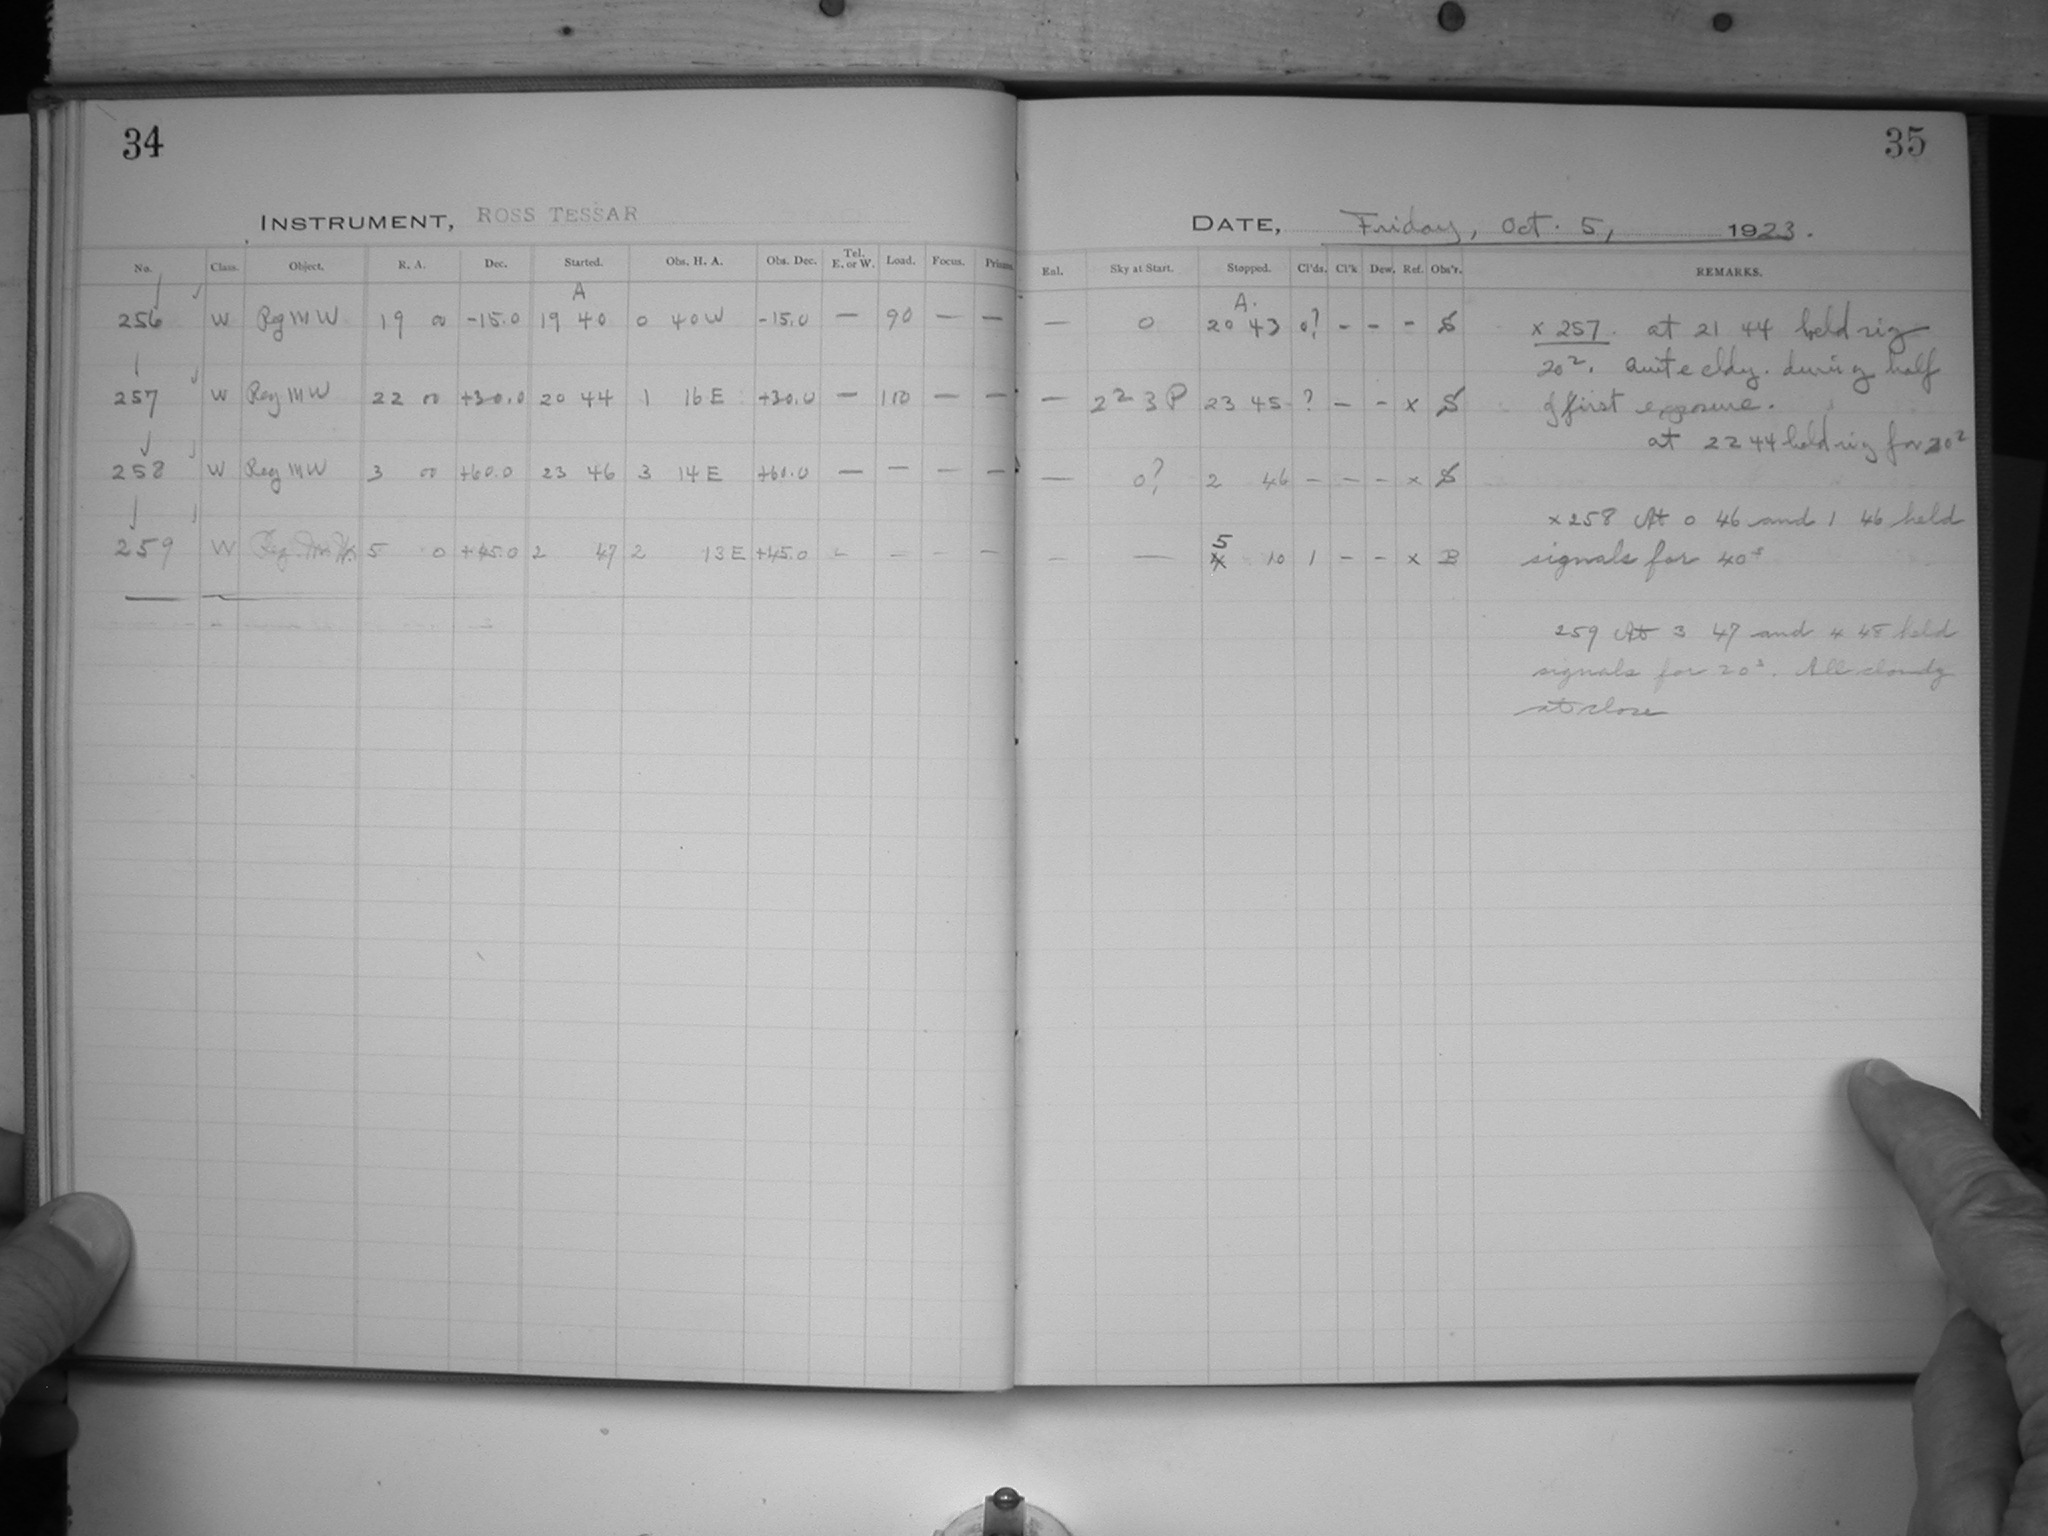 34
35
INSTRUMENT, ROSS TESSAR
DATE, Friday, Oct. 5, 1923.
No. Class. Object. R. A. Dec. Started. Obs. H. A. Obs. Dec. Tel. E. or W. Load. Focus. Prisms.
Enl. Sky at Start. Stopped. Cl'ds. Cl'k Dew. Ref. Obs'r. REMARKS.
A
A.
256 W Reg MW 19 00 -15.0 19 40 0 40 W -15.0 — 90 — —
— 0 20 43 0? - - - S
257 W Reg MW 22 00 +30.0 20 44 1 16 E +30.0 — 110 — —
— 2 2 3 P 23 45 ? - - x S
258 W Reg MW 3 00 +60.0 23 46 3 14 E +60.0 — — — —
— 0? 2 46 - - - x S
259 W Reg. M.W. 5 0 +45.0 2 47 2 13 E +45.0 - - - -
- — 5 10 1 - - x B
x 257. at 21 44 held sig
20s. Quite cldy. during half
of first exposure.
at 22 44 held sig for 20s
x 258 At 0 46 and 1 46 held
signals for 40s
259 At 3 47 and 4 48 held
signals for 20s. All cloudy
at close